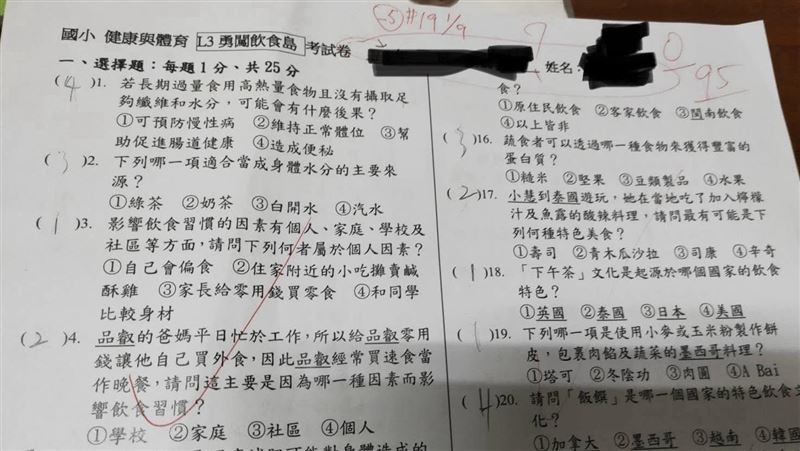 (-5) #19 1/9
國小 健康與體育 L3勇闖飲食島 考試卷
姓名:
95
一、選擇題:每題1分、共25分
(4)1. 若長期過量食用高熱量食物且沒有攝取足
夠纖維和水分,可能會有什麼後果?
①可預防慢性病 ②維持正常體位 ③幫
助促進腸道健康 ④造成便秘
(3)2. 下列哪一項適合當成身體水分的主要來
源?
①綠茶 ②奶茶 ③白開水 ④汽水
(1)3. 影響飲食習慣的因素有個人、家庭、學校及
社區等方面,請問下列何者屬於個人因素?
①自己會偏食 ②住家附近的小吃攤賣鹹
酥雞 ③家長給零用錢買零食 ④和同學
比較身材
(2)4. 品叡的爸媽平日忙於工作,所以給品叡零用
錢讓他自己買外食,因此品叡經常買速食當
作晚餐,請問這主要是因為哪一種因素而影
響飲食習慣?
①學校 ②家庭 ③社區 ④個人
食?
①原住民飲食 ②客家飲食 ③閩南飲食
④以上皆非
(3)16. 蔬食者可以透過哪一種食物來獲得豐富的
蛋白質?
①糙米 ②堅果 ③豆類製品 ④水果
(2)17. 小慧到泰國遊玩,她在當地吃了加入檸檬
汁及魚露的酸辣料理,請問最有可能是下
列何種特色美食?
①壽司 ②青木瓜沙拉 ③司康 ④辛奇
(1)18. 「下午茶」文化是起源於哪個國家的飲食
特色?
①英國 ②泰國 ③日本 ④美國
(1)19. 下列哪一項是使用小麥或玉米粉製作餅
皮,包裹肉餡及蔬菜的墨西哥料理?
①塔可 ②冬陰功 ③肉圓 ④A Bai
(4)20. 請問「飯饌」是哪一個國家的特色飲食文
化?
①加拿大 ②墨西哥 ③越南 ④韓國